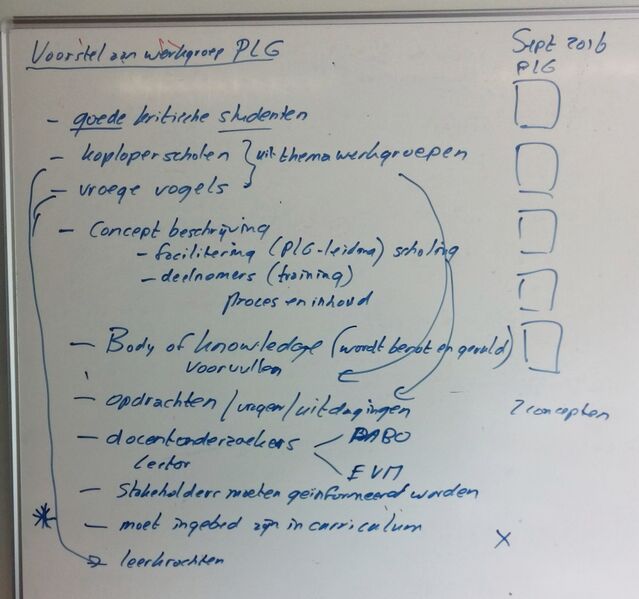 Voorstel aan werkgroep PLG
Sept 2016
PLG
- goede kritische studenten
- koploperscholen } uit themawerkgroepen
- vroege vogels
- Concept beschrijving
- facilitering (PLG-leiding) scholing
- deelnemers (training)
proces en inhoud
- Body of knowledge (wordt benut en gevuld)
voorvullen
- opdrachten / vragen / uitdagingen
2 concepten
- docentonderzoekers
BABO
lector
EVM
- Stakeholders moeten geïnformeerd worden
* - moet ingebed zijn in curriculum
X
leerkrachten